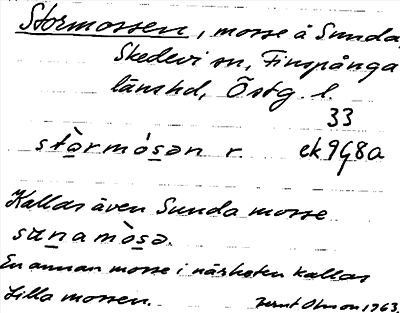 Stormossen, mosse å Sunda,
Skedevi sn, Finspånga
länshd, Östg. l.
33
stòrmósən r. ek 9g8a
Kallas även Sunda mosse
sunamòsə.
En annan mosse i närheten kallas
Lilla mossen. Bernt Olsson 1963.